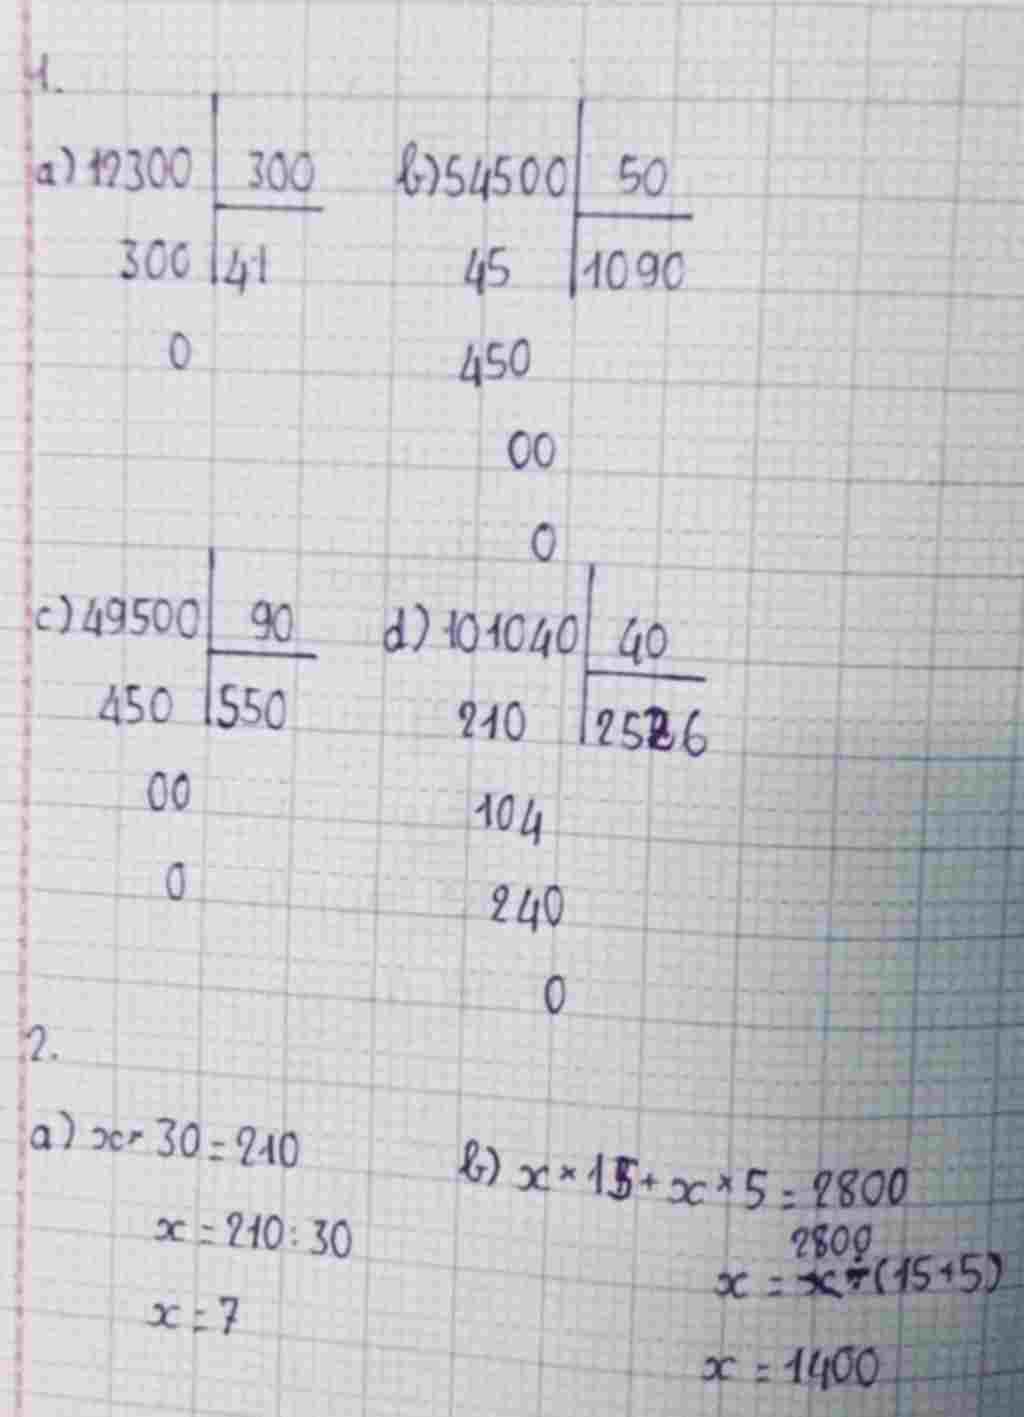 1.
a) 12300 300 b) 54500 50
300 41 45 1090
0 450
00
0
c) 49500 90 d) 101040 40
450 550 210 2526
00 104
0 240
0
2.
a) x × 30 = 210 b) x × 15 + x × 5 = 2800
x = 210 : 30 2800
x = x : (15+5)
x = 7
x = 1400